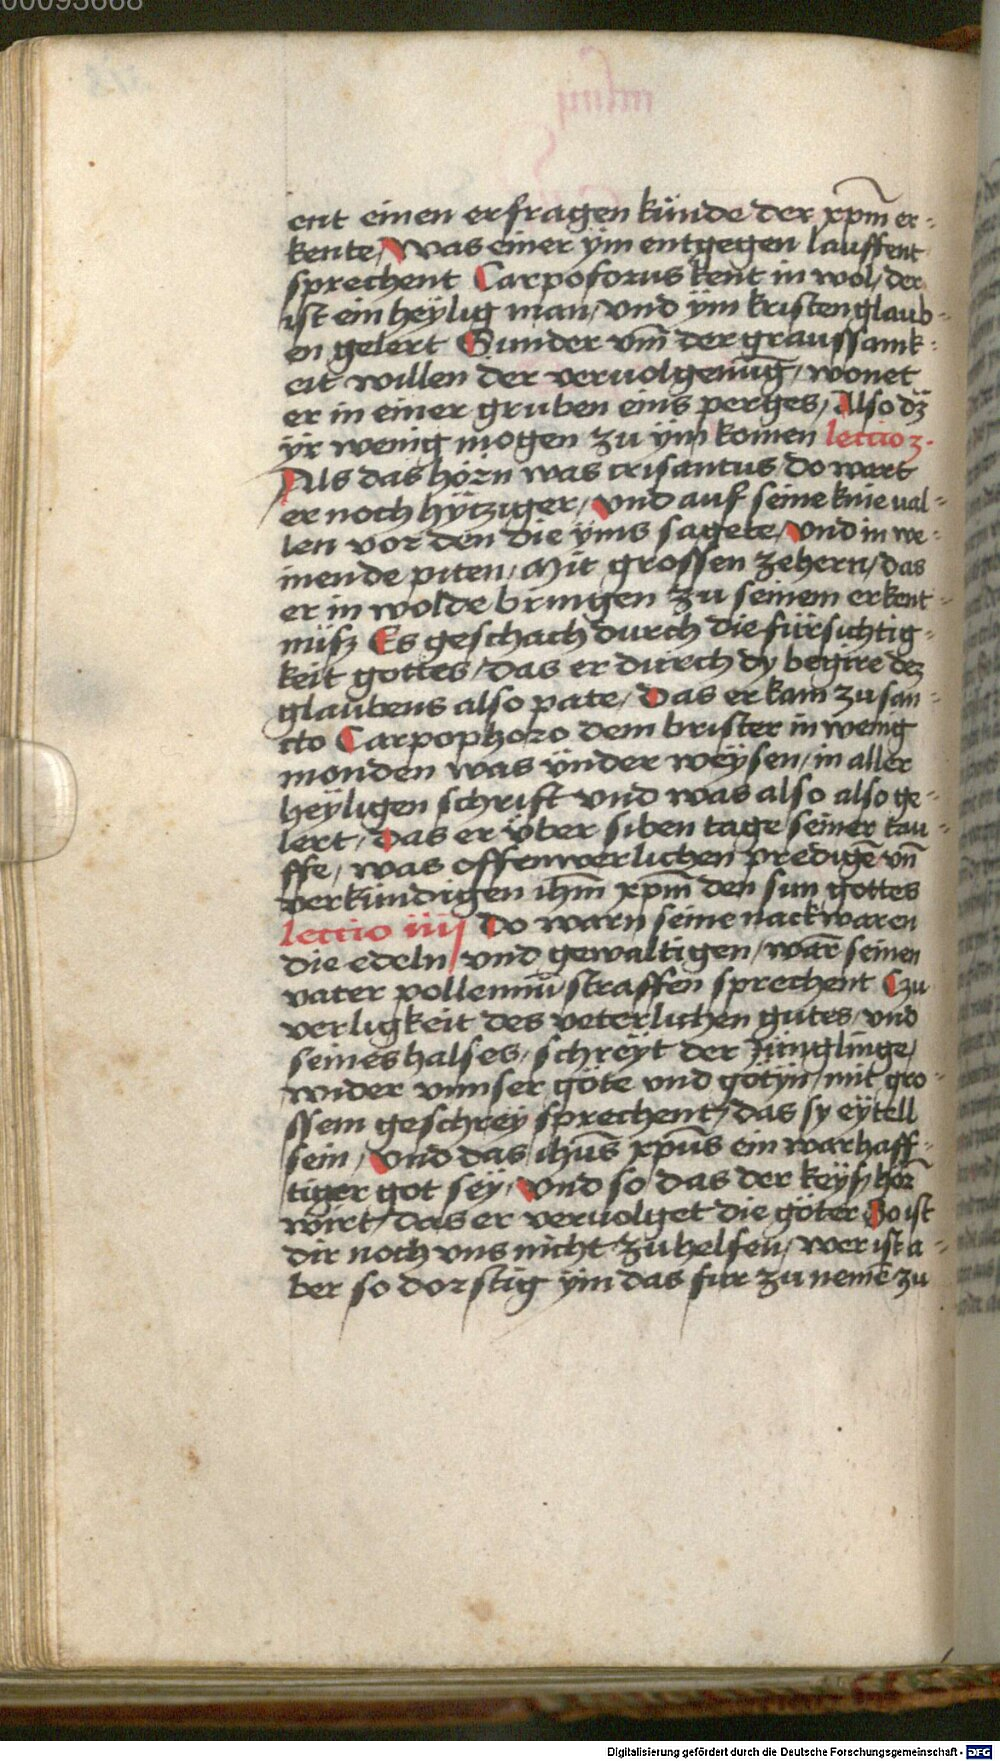 00093668
ent einen erfragen künde der xp̄m er-
kente, Was einer ÿm entgegen lauffent
sprechent Carpoforus kent in wol, der
ist ein heÿlig man, vnd ÿm kristenglaub-
en gelert Sunder vm̄ der graussamk-
eit willen der veruolgenūg, wonet
er in einer gruben eins perges, Also dz
ÿr wenig mogen zu ÿm komen lectio 3.
Als das hörn was crisantus, do wart
er noch hÿtziger, vnd auf seine knie ual-
len vor den die ÿms sagete, vnd in we-
inende piten, Mit grossen zehern, das
er in wolde bringen zu seinem erkent-
nüsz Es geschach durch die fürsichtig-
keit gottes, das er durch dy begire dez
glaubens also pate, Das er kam zu san-
cto Carpophoro dem brister in wenig
monden was ÿnder weÿsen, in aller
heÿligen schrift vnd was also also ge-
lert, Das er ÿber siben tage seiner tau-
ffe, was offenwerlichen predigē vn̄
verkündigen ihm̄ xp̄m den sun gottes
lectio iiij Do warn seine nackwaren
die edeln, vnd gewaltigen, war̄ seinen
vater pollemiū straffen sprechent Czu
verligkeit des veterlichen gutes, vnd
seines halses, schreÿt der Jünglinge,
wider vnnser göte vnd götÿn, mit gro-
ssem geschreÿ sprechent, das sy eÿtell
sein, Vnd das ihūs xpūs ein warhaff-
tiger got seÿ, Vnd so das der keÿsz hör̄
wirt, das er veruolget die göter So ist
dir noch vns nicht zu helfen, wer ist a-
ber so dorstig ÿm das fur zu nemē zu
Digitalisierung gefördert durch die Deutsche Forschungsgemeinschaft - DFG